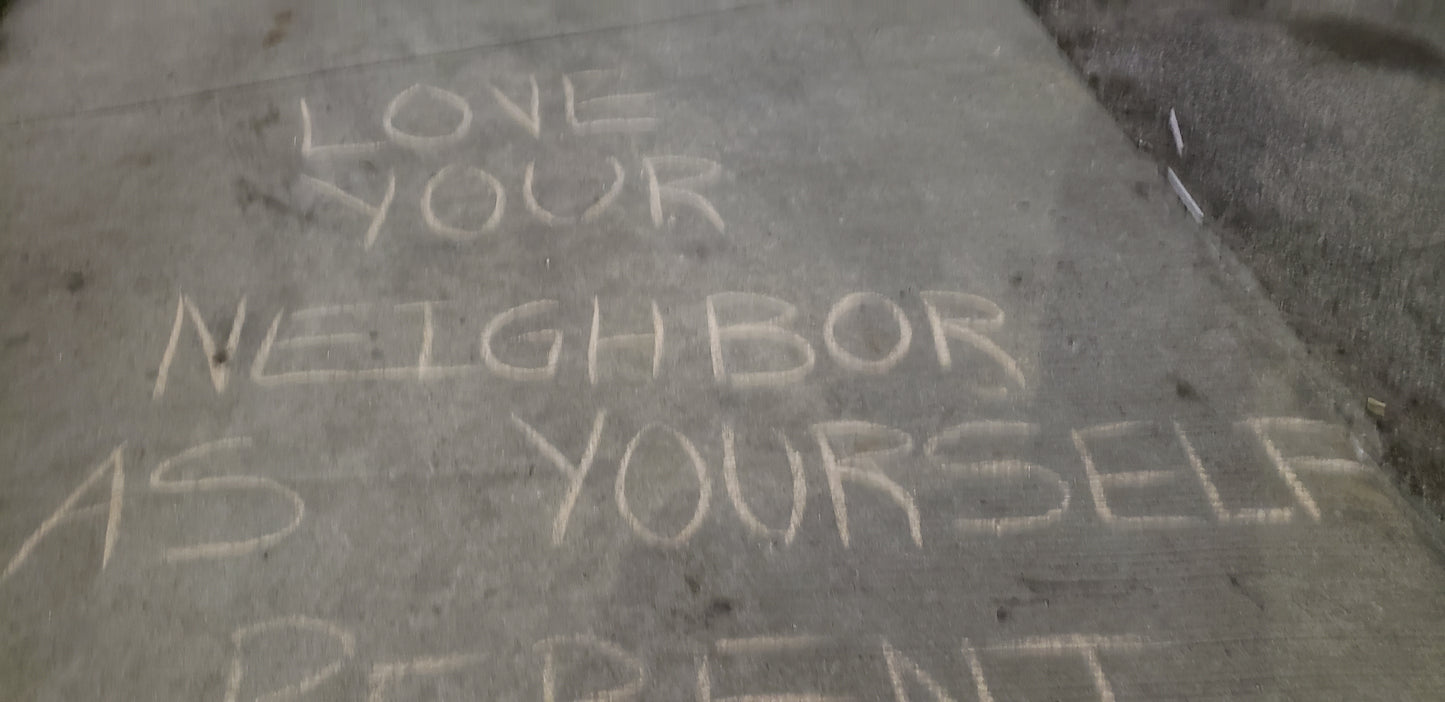 LOVE
YOUR
NEIGHBOR
AS YOURSELF
REPENT